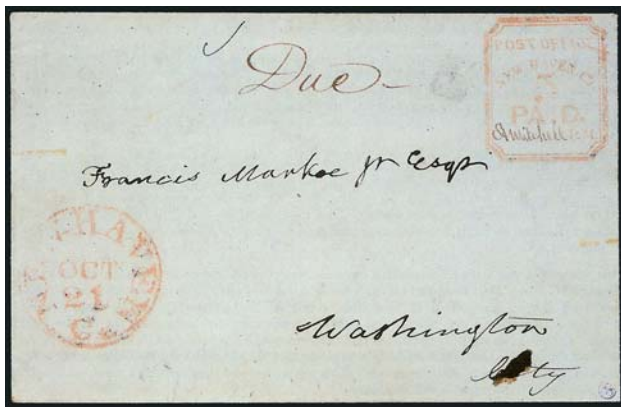 Due
POST OFFICE
NEW HAVEN Ct.
5
PAID.
Francis Markoe Jr Esqr
NEW HAVEN
OCT
21
Ct.
Washington
City